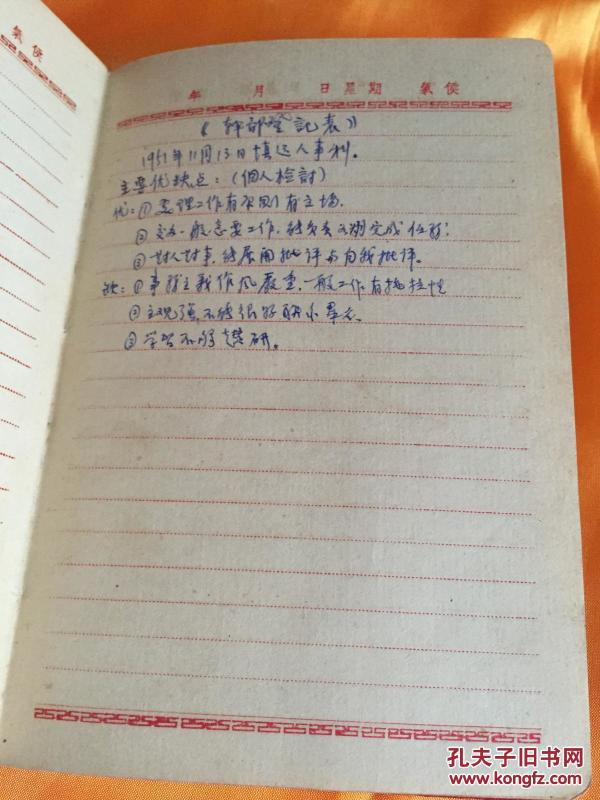 氣候
年 月 日 星期 氣候
《幹部登記表》
1951年11月13日填送人事科。
主要优缺点：（個人检討）
优：① 处理工作有原则有立场.
② 交办一般急要工作，能负责如期完成任务.
③ 对人对事，能展開批评与自我批评。
缺：① 事务主義作风严重，一般工作有拖拉性
② 主观强，不能很好联系羣众.
③ 学習不够鑽研.
孔夫子旧书网
www.kongfz.com